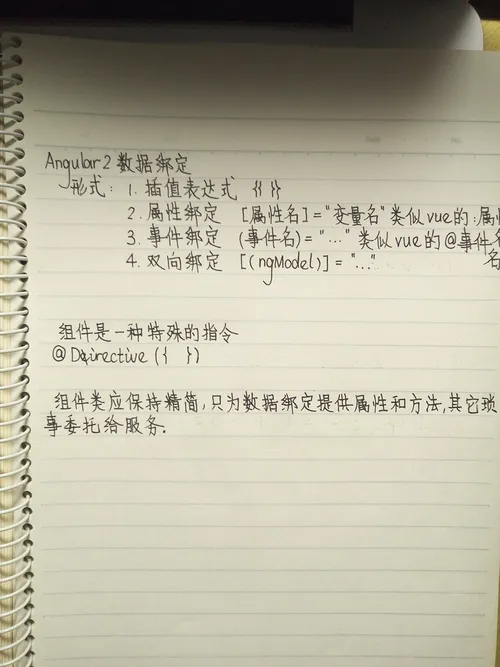 Angular2 数据绑定
形式: 1. 插值表达式 {{ }}
2. 属性绑定 [属性名]="变量名" 类似vue的:属
3. 事件绑定 (事件名)="..." 类似vue的@事件名
4. 双向绑定 [(ngModel)]="..."
组件是一种特殊的指令
@Dairective({ })
组件类应保持精简,只为数据绑定提供属性和方法,其它琐
事委托给服务.